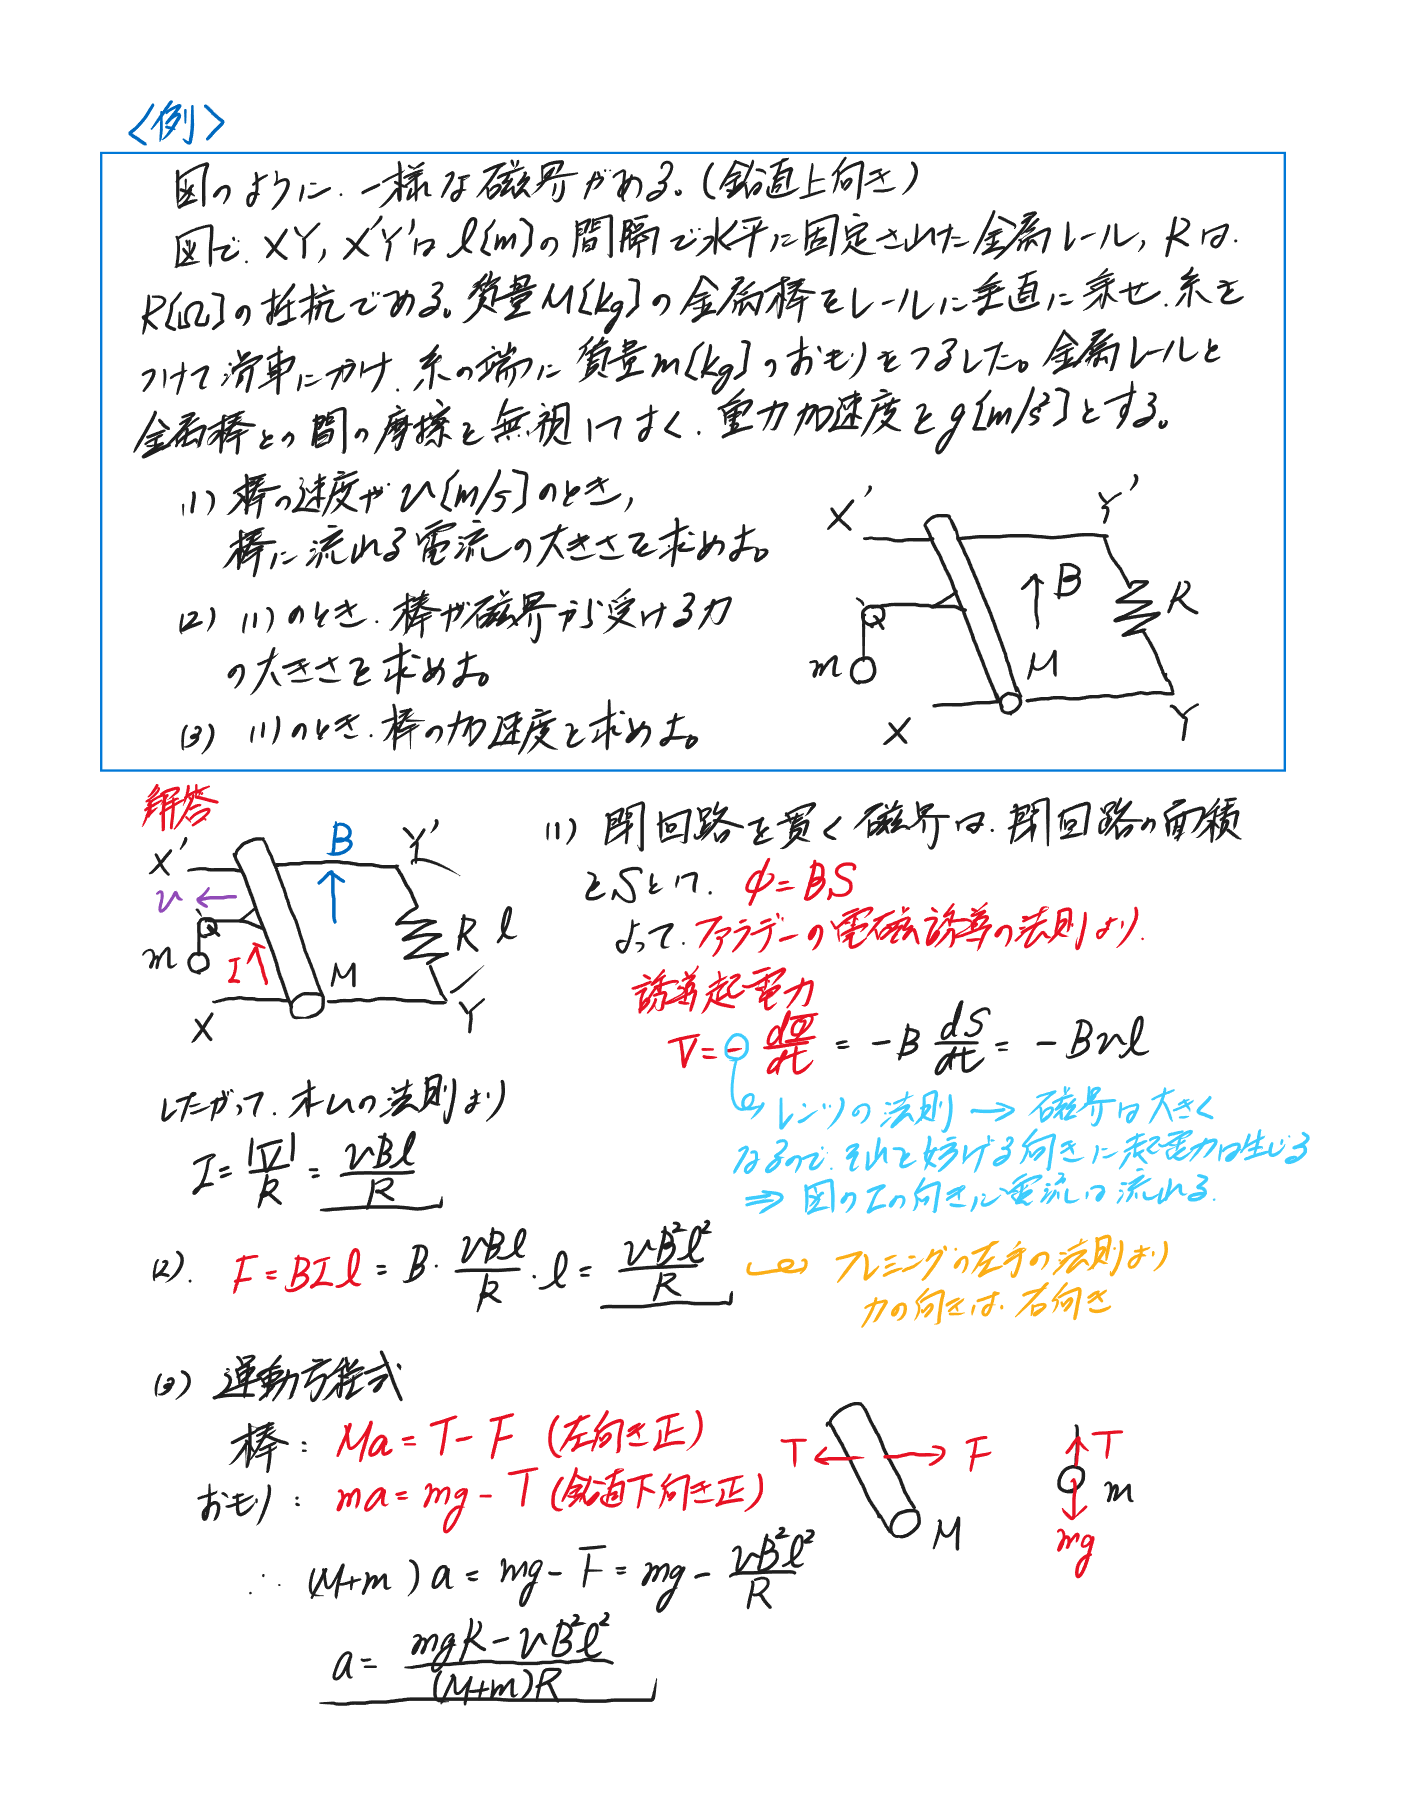 〈例〉
図のように、一様な磁界がある。(鉛直上向き)
図で、XY, X'Y'は l[m]の間隔で水平に固定された金属レール, Rは、
R[Ω]の抵抗である。質量M[kg]の金属棒をレールに垂直に乗せ、糸を
つけて滑車にかけ、糸の端に質量m[kg]のおもりをつるした。金属レールと
金属棒との間の摩擦を無視してよく、重力加速度をg[m/s²]とする。
(1) 棒の速度が v[m/s]のとき,
棒に流れる電流の大きさを求めよ。
(2) (1)のとき、棒が磁界から受ける力
の大きさを求めよ。
(3) (1)のとき、棒の加速度を求めよ。
X' Y'
B
R
m
M
X Y
解答
X' B Y'
v
m I M R l
X Y
(1) 閉回路を貫く磁界は、閉回路の面積
をSとして、 φ=BS
よって、ファラデーの電磁誘導の法則より、
誘導起電力
V = - dΦ/dt = -B dS/dt = -Bvl
レンツの法則 → 磁界は大きく
なるので、それを妨げる向きに起電力は生じる
⇒ 図のIの向きに電流は流れる.
したがって、オームの法則より
I = |V|/R = vBl/R
(2). F = BIl = B・vBl/R・l = vB²l²/R
フレミングの左手の法則より
力の向きは、右向き
(3) 運動方程式
棒: Ma = T - F (左向き正)
おもり: ma = mg - T (鉛直下向き正)
T F M
T m mg
∴ (M+m)a = mg - F = mg - vB²l²/R
a = mgR - vB²l²/(M+m)R